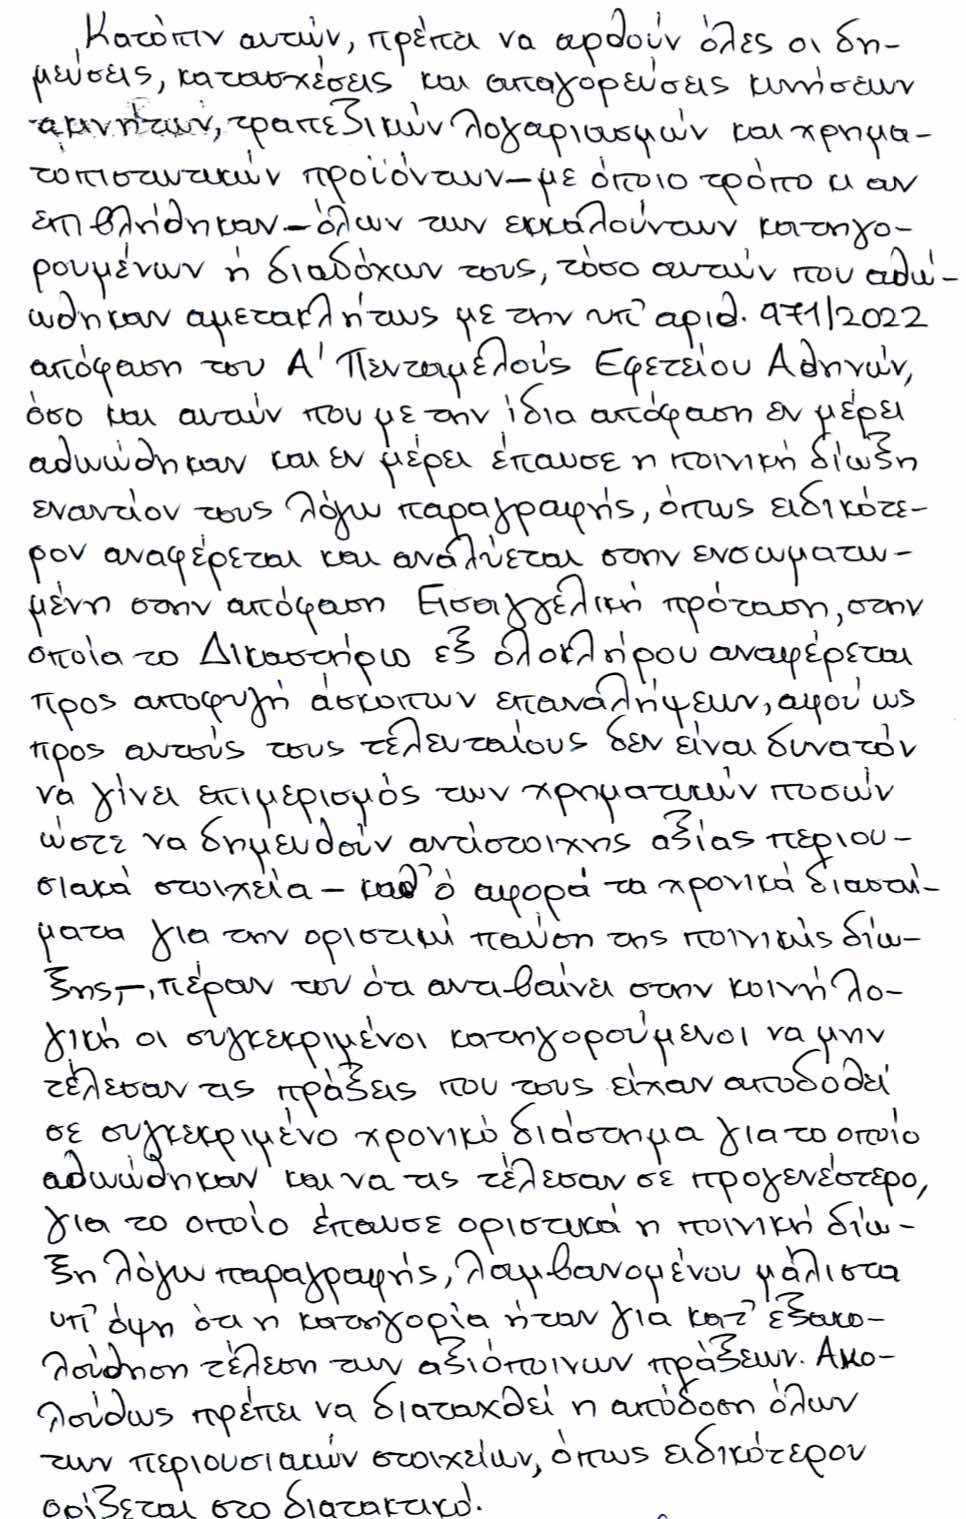 Κατόπιν αυτών, πρέπει να αρθούν όλες οι δη-
μεύσεις, κατασχέσεις και απαγορεύσεις κινήσεων
ακινήτων, τραπεζικών λογαριασμών και χρημα-
τοπιστωτικών προϊόντων – με όποιο τρόπο κι αν
επιβλήθηκαν – όλων των εκκαλούντων κατηγο-
ρουμένων ή διαδόχων τους, τόσο αυτών που αθω-
ώθηκαν αμετακλήτως με την υπ' αριθ. 971/2022
απόφαση του Α' Πενταμελούς Εφετείου Αθηνών,
όσο και αυτών που με την ίδια απόφαση εν μέρει
αθωώθηκαν και εν μέρει έπαυσε η ποινική δίωξη
εναντίον τους λόγω παραγραφής, όπως ειδικότε-
ρον αναφέρεται και αναλύεται στην ενσωματω-
μένη στην απόφαση Εισαγγελική πρόταση, στην
οποία το Δικαστήριο εξ ολοκλήρου αναφέρεται
προς αποφυγή άσκοπων επαναλήψεων, αφού ως
προς αυτούς τους τελευταίους δεν είναι δυνατόν
να γίνει επιμερισμός των χρηματικών ποσών
ώστε να δημευθούν αντίστοιχης αξίας περιου-
σιακά στοιχεία – καθ' ό αφορά τα χρονικά διαστή-
ματα για την οριστική παύση της ποινικής δίω-
ξης –, πέραν του ότι αντιβαίνει στην κοινή λο-
γική οι συγκεκριμένοι κατηγορούμενοι να μην
τέλεσαν τις πράξεις που τους είχαν αποδοθεί
σε συγκεκριμένο χρονικό διάστημα για το οποίο
αθωώθηκαν και να τις τέλεσαν σε προγενέστερο,
για το οποίο έπαυσε οριστικά η ποινική δίω-
ξη λόγω παραγραφής, λαμβανομένου μάλιστα
υπ' όψη ότι η κατηγορία ήταν για κατ' εξακο-
λούθηση τέλεση των αξιόποινων πράξεων. Ακο-
λούθως πρέπει να διαταχθεί η απόδοση όλων
των περιουσιακών στοιχείων, όπως ειδικότερον
ορίζεται στο διατακτικό.